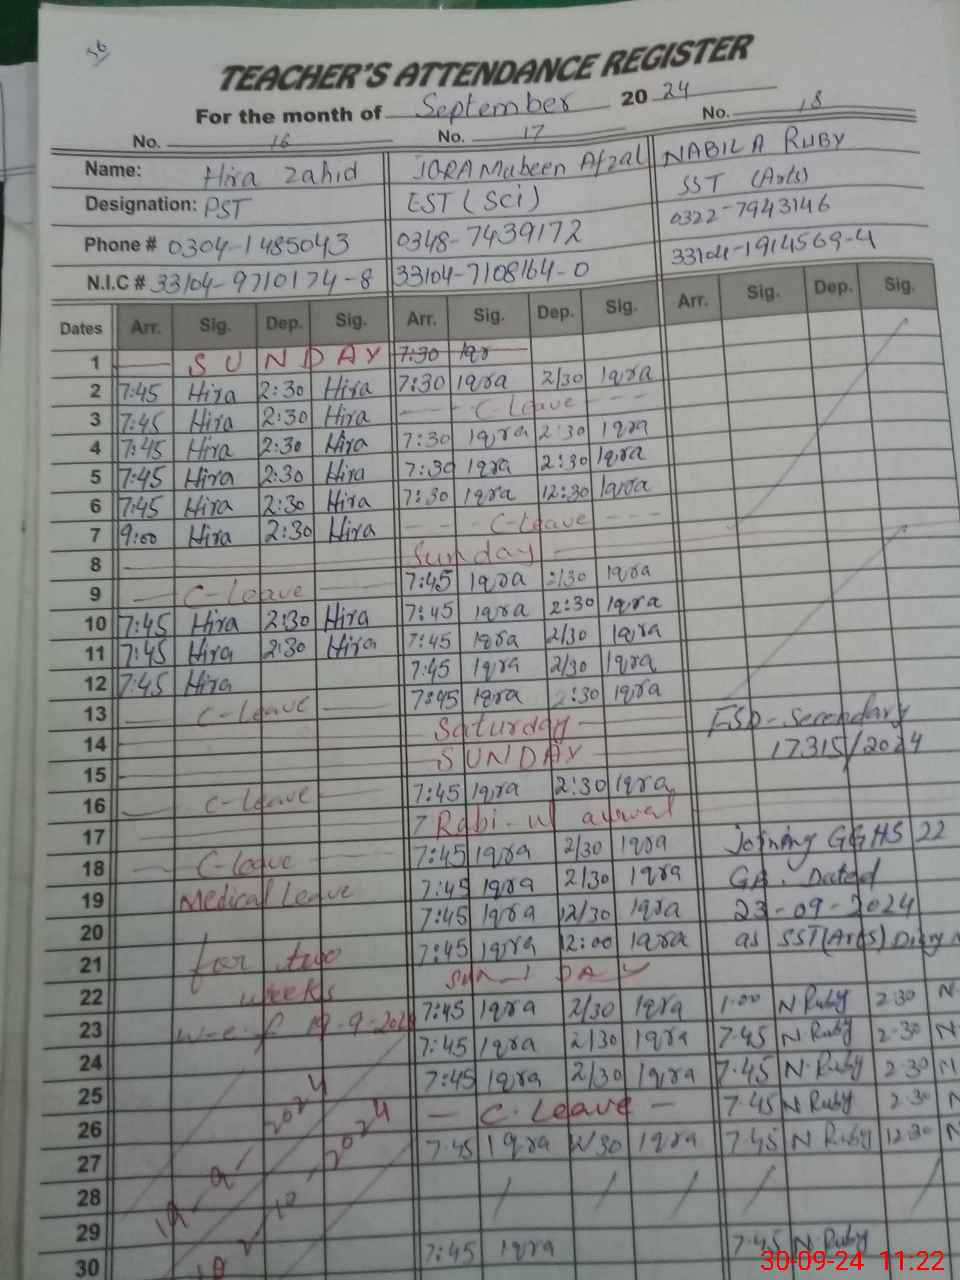 36
TEACHER'S ATTENDANCE REGISTER
For the month of September 2024
No. 16 No. 17 No. 18
Name: Hira Zahid IQRA Mubeen Afzal NABILA RUBY
Designation: PST EST (Sci) SST (Arts)
Phone # 0304-1485043 0348-7439172 0322-7943146
N.I.C # 33104-9710174-8 33104-7108164-0 33104-1914569-4
Dates Arr. Sig. Dep. Sig. Arr. Sig. Dep. Sig. Arr. Sig. Dep. Sig.
1 SUNDAY 7:30 Iqr
2 7:45 Hira 2:30 Hira 7:30 Iqra 2/30 Iqra
3 7:45 Hira 2:30 Hira C-Leave
4 7:45 Hira 2:30 Hira 7:30 Iqra 2:30 Iqra
5 7:45 Hira 2:30 Hira 7:30 Iqra 2:30 Iqra
6 7:45 Hira 2:30 Hira 7:30 Iqra 12:30 Iqra
7 9:00 Hira 2:30 Hira C-Leave
8 Sunday
9 C-Leave 7:45 Iqra 2/30 Iqra
10 7:45 Hira 2:30 Hira 7:45 Iqra 2:30 Iqra
11 7:45 Hira 2:30 Hira 7:45 Iqra 2/30 Iqra
12 7:45 Hira 7:45 Iqra 2/30 Iqra
13 C-Leave 7:45 Iqra 2:30 Iqra
14 Saturday FSD-Secendary
15 SUNDAY 17315/2024
16 C-Leave 7:45 Iqra 2:30 Iqra
17 7 Rabi-ul awwal
18 C-Leave 7:45 Iqra 2/30 Iqra Joining GGHS 22
19 Medical Leave 7:45 Iqra 2/30 Iqra GB. Dated
20 7:45 Iqra 12/30 Iqra 23-09-2024
21 for two 7:45 Iqra 12:00 Iqra as SST(Arts) Diary
22 weeks SUNDAY
23 w-e-f 19-9-2024 7:45 Iqra 2/30 Iqra 1:00 N Ruby 2:30 N
24 7:45 Iqra 2/30 Iqra 7:45 N Ruby 2:30 N
25 7:45 Iqra 2/30 Iqra 7:45 N Ruby 2:30 N
26 C. Leave 7:45 N Ruby 2:30 N
27 7:45 Iqra 12/30 Iqra 7:45 N Ruby 12:30 N
28
29
30 7:45 Iqra 7:45 N Ruby
2024
2024
30-09-24 11:22